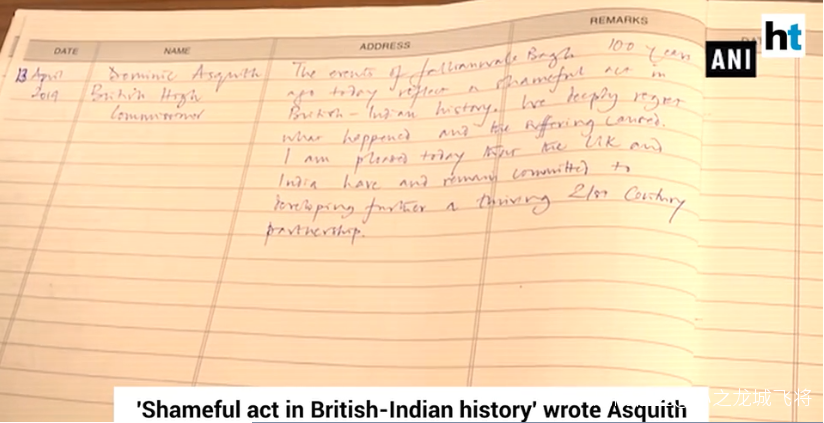 DATE NAME ADDRESS REMARKS
ht
ANI
13 April 2019
Dominic Asquith
British High
Commissioner
The events of Jallianwala Bagh 100 years
ago today reflect a shameful act in
British-Indian history. We deeply regret
what happened and the suffering caused.
I am pleased today that the UK and
India have and remain committed to
developing further a thriving 21st Century
partnership.
'Shameful act in British-Indian history' wrote Asquith
之龙城飞将